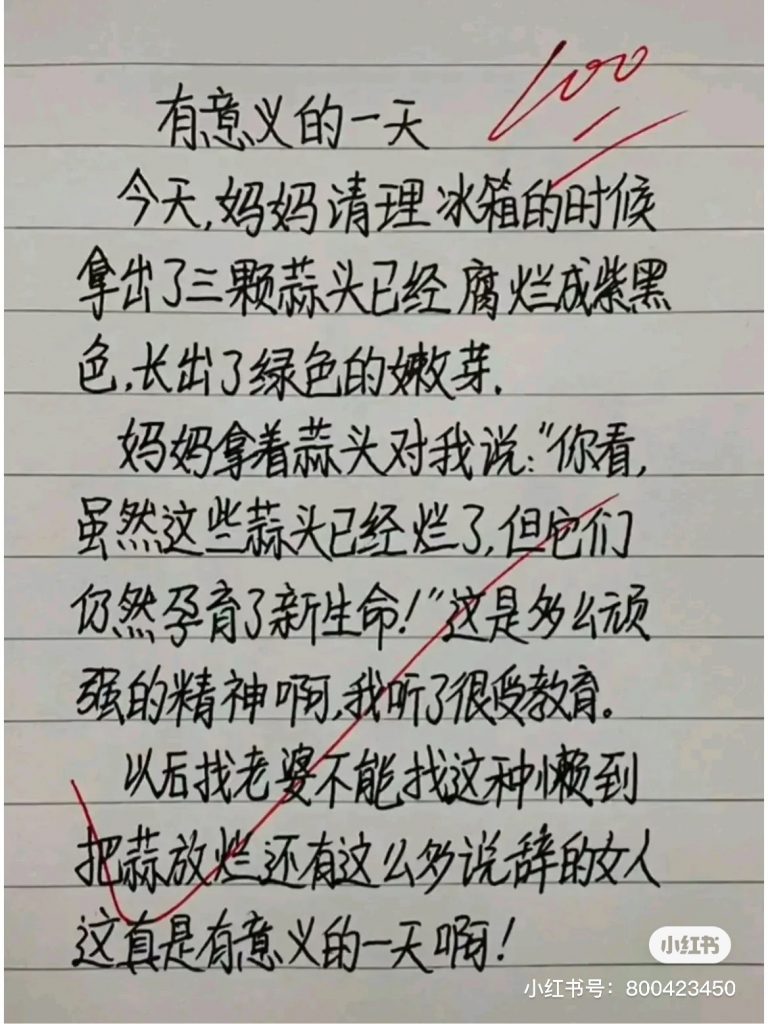 100
有意义的一天
今天,妈妈清理冰箱的时候
拿出了三颗蒜头已经腐烂成紫黑
色,长出了绿色的嫩芽.
妈妈拿着蒜头对我说:"你看,
虽然这些蒜头已经烂了,但它们
仍然孕育了新生命!"这是多么顽
强的精神啊,我听了很受教育。
以后找老婆不能找这种懒到
把蒜放烂还有这么多说辞的女人
这真是有意义的一天啊!
小红书
小红书号：800423450